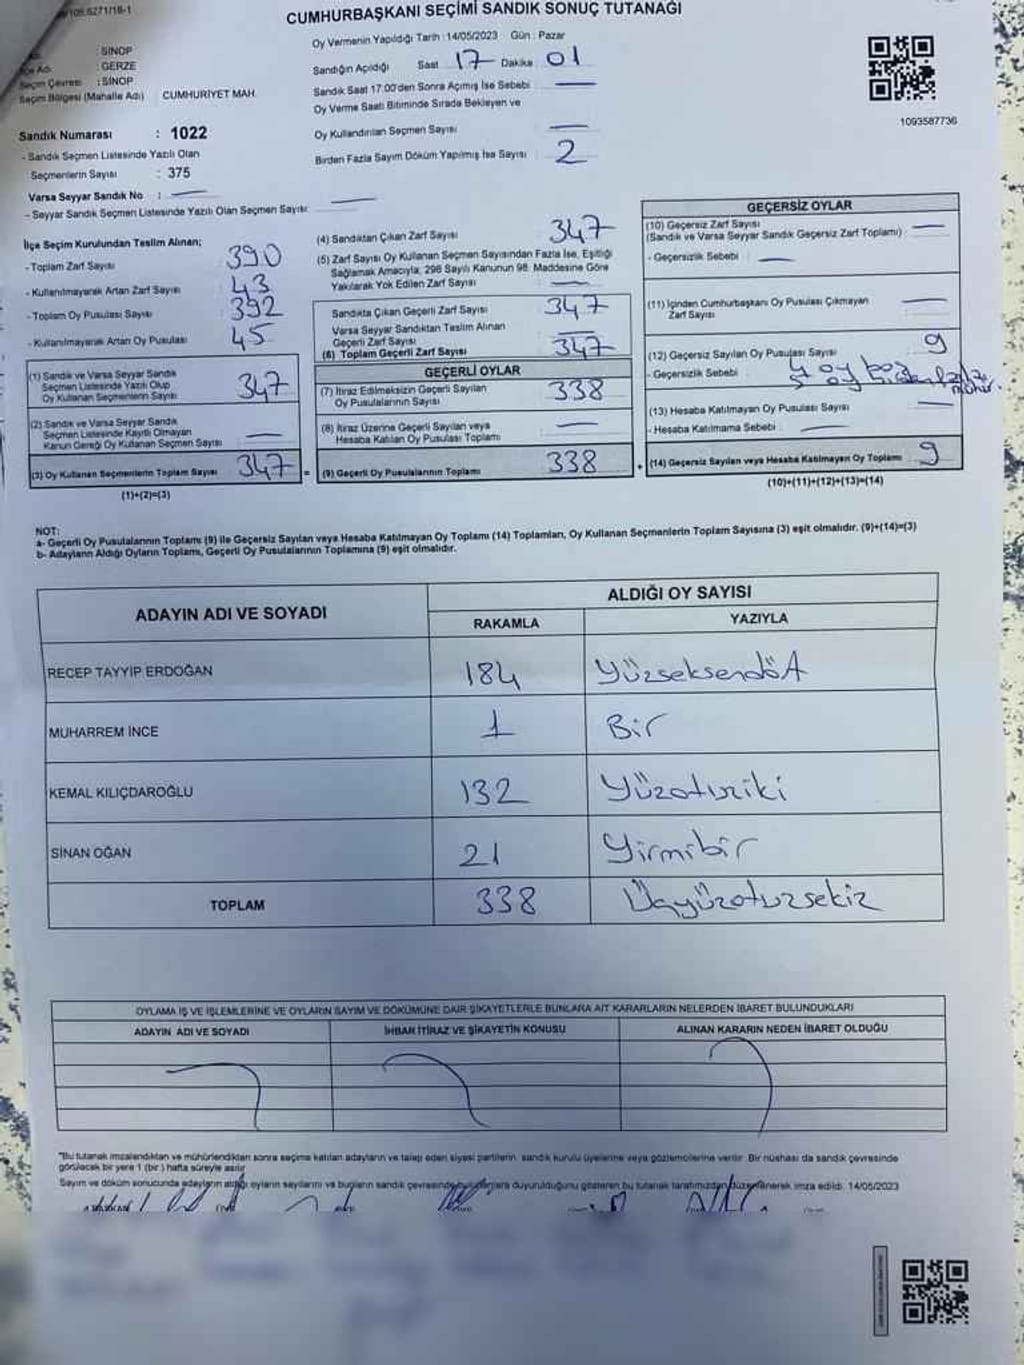 CUMHURBAŞKANI SEÇİMİ SANDIK SONUÇ TUTANAĞI
Oy Vermenin Yapıldığı Tarih : 14/05/2023 Gün : Pazar
: SİNOP
İlçe Adı : GERZE
Seçim Çevresi : SİNOP
Seçim Bölgesi (Mahalle Adı) CUMHURİYET MAH.
Sandık Numarası : 1022
- Sandık Seçmen Listesinde Yazılı Olan
Seçmenlerin Sayısı : 375
Varsa Seyyar Sandık No : —
- Seyyar Sandık Seçmen Listesinde Yazılı Olan Seçmen Sayısı: —
Sandığın Açıldığı Saat 17 Dakika 01
Sandık Saat 17.00'den Sonra Açımış İse Sebebi —
Oy Verme Saati Bitiminde Sırada Bekleyen ve
Oy Kullandırılan Seçmen Sayısı —
Birden Fazla Sayım Döküm Yapılmış İse Sayısı 2
1093587736
İlçe Seçim Kurulundan Teslim Alınan;
- Toplam Zarf Sayısı 390
- Kullanılmayarak Artan Zarf Sayısı 43
- Toplam Oy Pusulası Sayısı 392
- Kullanılmayarak Artan Oy Pusulası 45
(1) Sandık ve Varsa Seyyar Sandık
Seçmen Listesinde Yazılı Olup
Oy Kullanan Seçmenlerin Sayısı 347
(2) Sandık ve Varsa Seyyar Sandık
Seçmen Listesinde Kayıtlı Olmayan
Kanun Gereği Oy Kullanan Seçmen Sayısı —
(3) Oy Kullanan Seçmenlerin Toplam Sayısı 347 =
(1)+(2)=(3)
(4) Sandıktan Çıkan Zarf Sayısı 347
(5) Zarf Sayısı Oy Kullanan Seçmen Sayısından Fazla İse, Eşitliği
Sağlamak Amacıyla, 298 Sayılı Kanunun 98. Maddesine Göre
Yakılarak Yok Edilen Zarf Sayısı —
Sandıkta Çıkan Geçerli Zarf Sayısı 347
Varsa Seyyar Sandıktan Teslim Alınan
Geçerli Zarf Sayısı —
(6) Toplam Geçerli Zarf Sayısı 347
GEÇERLİ OYLAR
(7) İtiraz Edilmeksizin Geçerli Sayılan
Oy Pusulalarının Sayısı 338
(8) İtiraz Üzerine Geçerli Sayılan veya
Hesaba Katılan Oy Pusulası Toplamı —
(9) Geçerli Oy Pusulalarının Toplamı 338 +
GEÇERSİZ OYLAR
(10) Geçersiz Zarf Sayısı
(Sandık ve Varsa Seyyar Sandık Geçersiz Zarf Toplamı) —
- Geçersizlik Sebebi —
(11) İçinden Cumhurbaşkanı Oy Pusulası Çıkmayan
Zarf Sayısı —
(12) Geçersiz Sayılan Oy Pusulası Sayısı 9
- Geçersizlik Sebebi 4 oy boş
5 oy birden fazla
mühür.
(13) Hesaba Katılmayan Oy Pusulası Sayısı —
- Hesaba Katılmama Sebebi —
(14) Geçersiz Sayılan veya Hesaba Katılmayan Oy Toplamı 9
(10)+(11)+(12)+(13)=(14)
NOT:
a- Geçerli Oy Pusulalarının Toplamı (9) ile Geçersiz Sayılan veya Hesaba Katılmayan Oy Toplamı (14) Toplamları, Oy Kullanan Seçmenlerin Toplam Sayısına (3) eşit olmalıdır. (9)+(14)=(3)
b- Adayların Aldığı Oyların Toplamı, Geçerli Oy Pusulalarının Toplamına (9) eşit olmalıdır.
ADAYIN ADI VE SOYADI ALDIĞI OY SAYISI
RAKAMLA YAZIYLA
RECEP TAYYİP ERDOĞAN 184 Yüzseksendört
MUHARREM İNCE 1 Bir
KEMAL KILIÇDAROĞLU 132 Yüzotuziki
SİNAN OĞAN 21 Yirmibir
TOPLAM 338 Üçyüzotuzsekiz
OYLAMA İŞ VE İŞLEMLERİNE VE OYLARIN SAYIM VE DÖKÜMÜNE DAİR ŞİKAYETLERLE BUNLARA AİT KARARLARIN NELERDEN İBARET BULUNDUKLARI
ADAYIN ADI VE SOYADI İHBAR İTİRAZ VE ŞİKAYETİN KONUSU ALINAN KARARIN NEDEN İBARET OLDUĞU
"Bu tutanak imzalandıktan ve mühürlendikten sonra seçime katılan adayların ve talep eden siyasi partilerin, sandık kurulu üyelerine veya gözlemcilerine verilir. Bir nüshası da sandık çevresinde
görülecek bir yere 1 (bir) hafta süreyle asılır
Sayım ve döküm sonucunda adayların aldığı oyların sayılarını ve bunların sandık çevresinde duyurulduğunu gösteren bu tutanak tarafımızdan düzenlenerek imza edildi. 14/05/2023